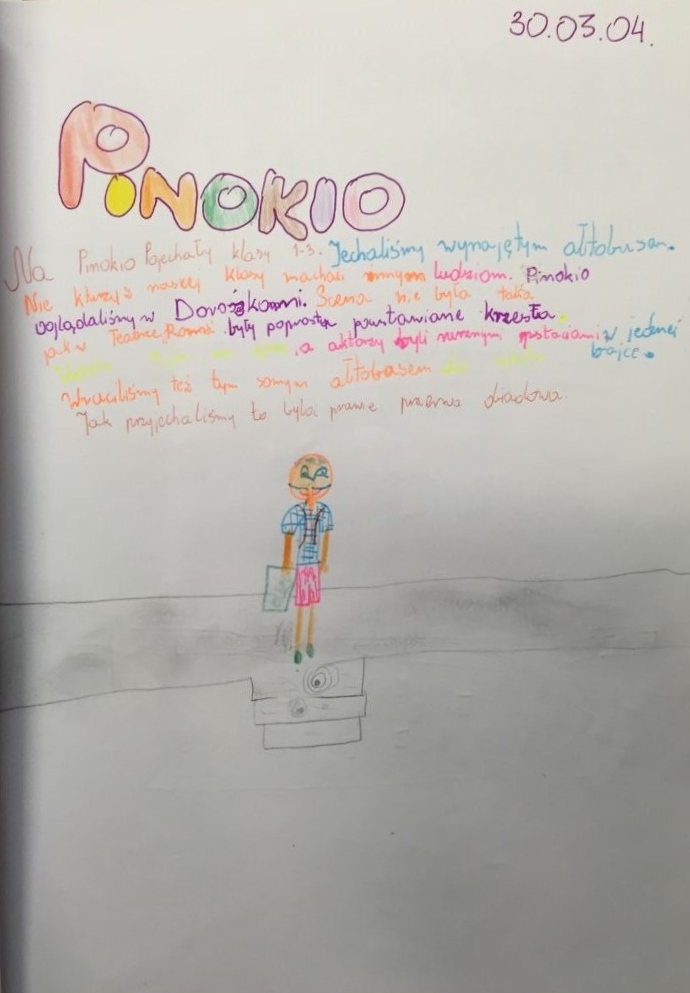 30.03.04.
PINOKIO
Na Pinokio Pojechały klasy 1-3. Jechaliśmy wynajętym ałtobusem.
Nie którzy z naszej klasy machali innym ludziom. Pinokio
oglądaliśmy w Dorożkarni. Scena nie była taka
jak w Teatrze Roma były poprostu powstawiane krzesła.
, a aktorzy byli różnymi postaciami w jednej
bajce.
Wruciliśmy też tym samym ałtobusem
Jak przyjechaliśmy to była prawie przerwa obiadowa.